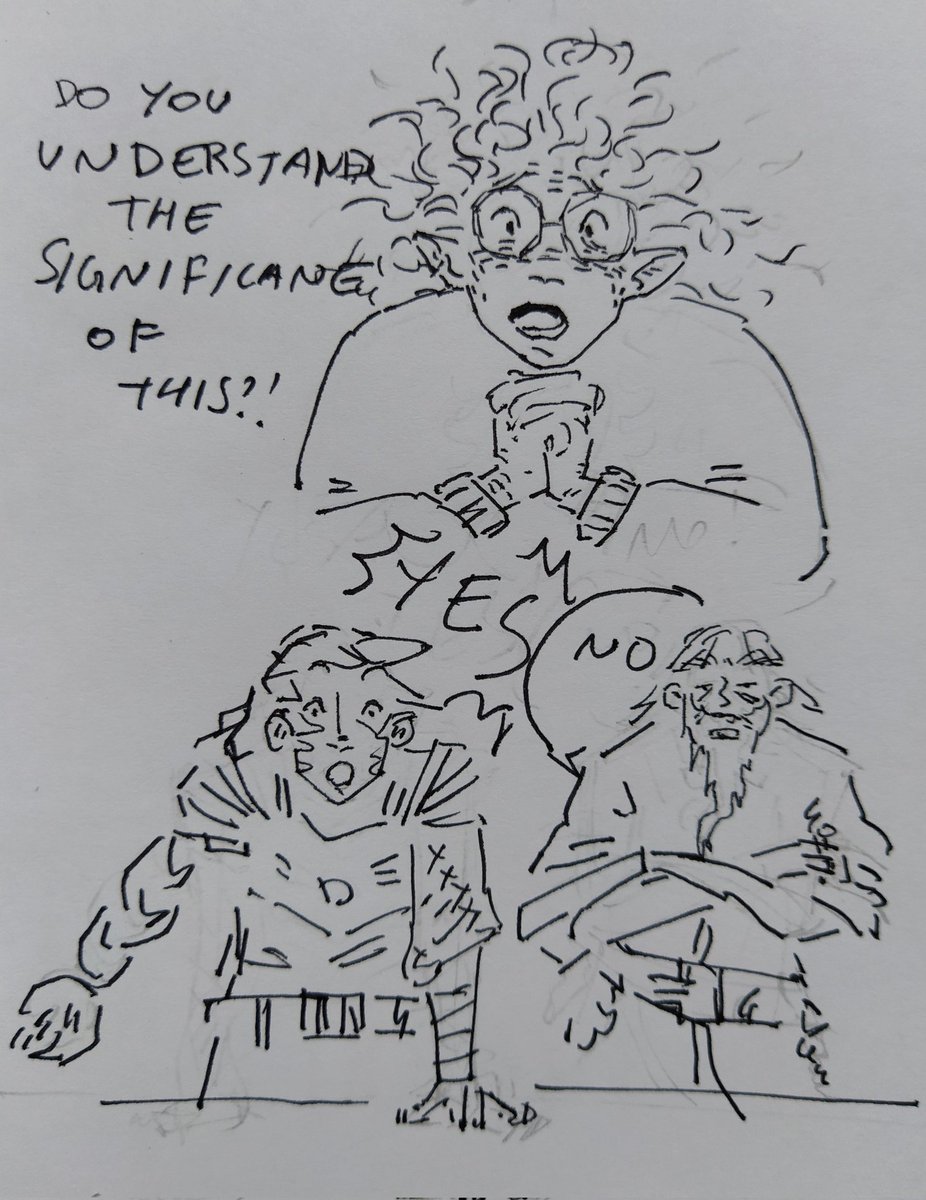 DO YOU
UNDERSTAND
THE
SIGNIFICANCE
OF
THIS?!
YES
NO